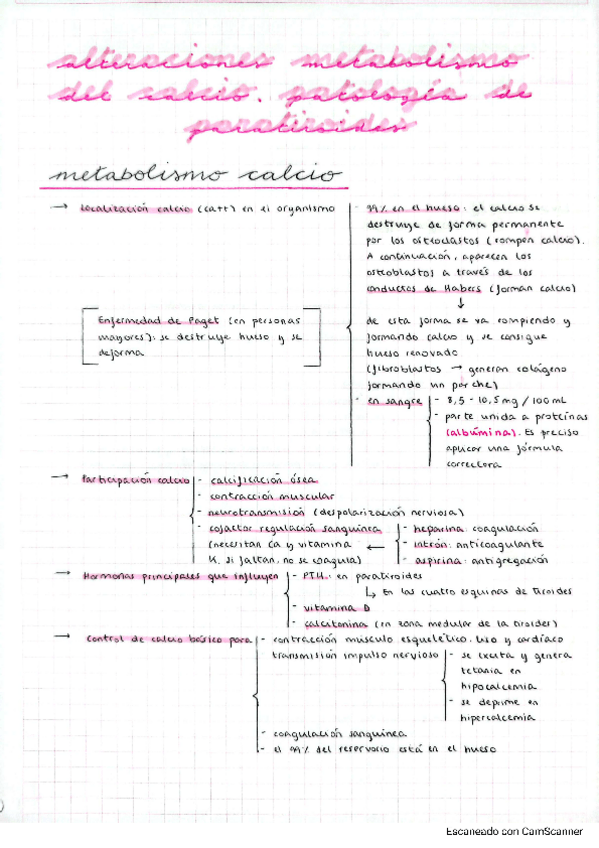 alteraciones metabolismo
del calcio. patología de
paratiroides
metabolismo calcio
→ Localización calcio (Ca++) en el organismo
- 99% en el hueso: el calcio se
destruye de forma permanente
por los osteoclastos (rompen calcio).
A continuación, aparecen los
osteoblastos a través de los
conductos de Habers (forman calcio)
↓
de esta forma se va rompiendo y
formando calcio y se consigue
hueso renovado
(fibroblastos → generan colágeno
formando un parche)
Enfermedad de Paget (en personas
mayores): se destruye hueso y se
deforma
- en sangre
- 8,5 - 10,5 mg / 100 mL
- parte unida a proteínas
(albúmina). Es preciso
aplicar una fórmula
correctora
→ Participación calcio
- calcificación ósea
- contracción muscular
- neurotransmisión (despolarización nerviosa)
- cofactor regulación sanguínea
(necesitan Ca y vitamina
K. si faltan, no se coagula)
←
- heparina: coagulación
- : anticoagulante
- aspirina: antigregación
→ Hormonas principales que influyen
- PTH: en paratiroides
↳ En las cuatro esquinas de tiroides
- vitamina D
- calcitonina (en zona medular de la tiroides)
→ Control de calcio básico para
- contracción músculo esquelético, liso y cardíaco
transmisión impulso nervioso
- se excita y genera
tetania en
hipocalcemia
- se deprime en
hipercalcemia
- coagulación sanguínea
- el 99% del reservorio está en el hueso
Escaneado con CamScanner